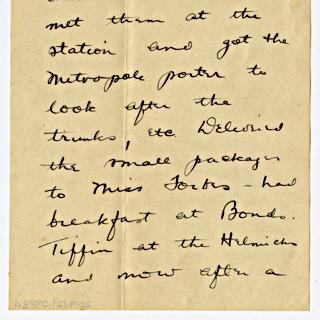 met them at the
station and got the
Metropole porter to
look after the
trunks, etc. Delivered
the small packages
to Miss Forbes - had
breakfast at Bonds.
Tiffin at the Helmichs
and now after a